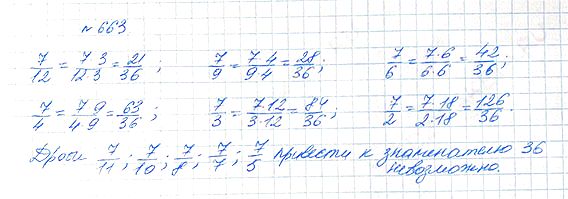 № 663.
7/12 = 7 3/12 3 = 21/36 ; 7/9 = 7 4/9 4 = 28/36 ; 7/6 = 7·6/6·6 = 42/36 ;
7/4 = 7 9/4 9 = 63/36 ; 7/3 = 7·12/3·12 = 84/36 ; 7/2 = 7·18/2·18 = 126/36 .
Дроби 7/11 ; 7/10 ; 7/8 ; 7/7 ; 7/5 привести к знаменателю 36
невозможно.